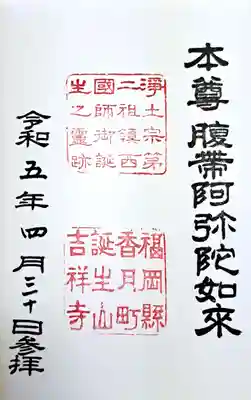 本尊腹帯阿弥陀如来
淨土宗第
二祖鎮西
國師御誕
生之靈跡
福岡縣
香月町
誕生山
吉祥寺
令和五年四月三十日参拝